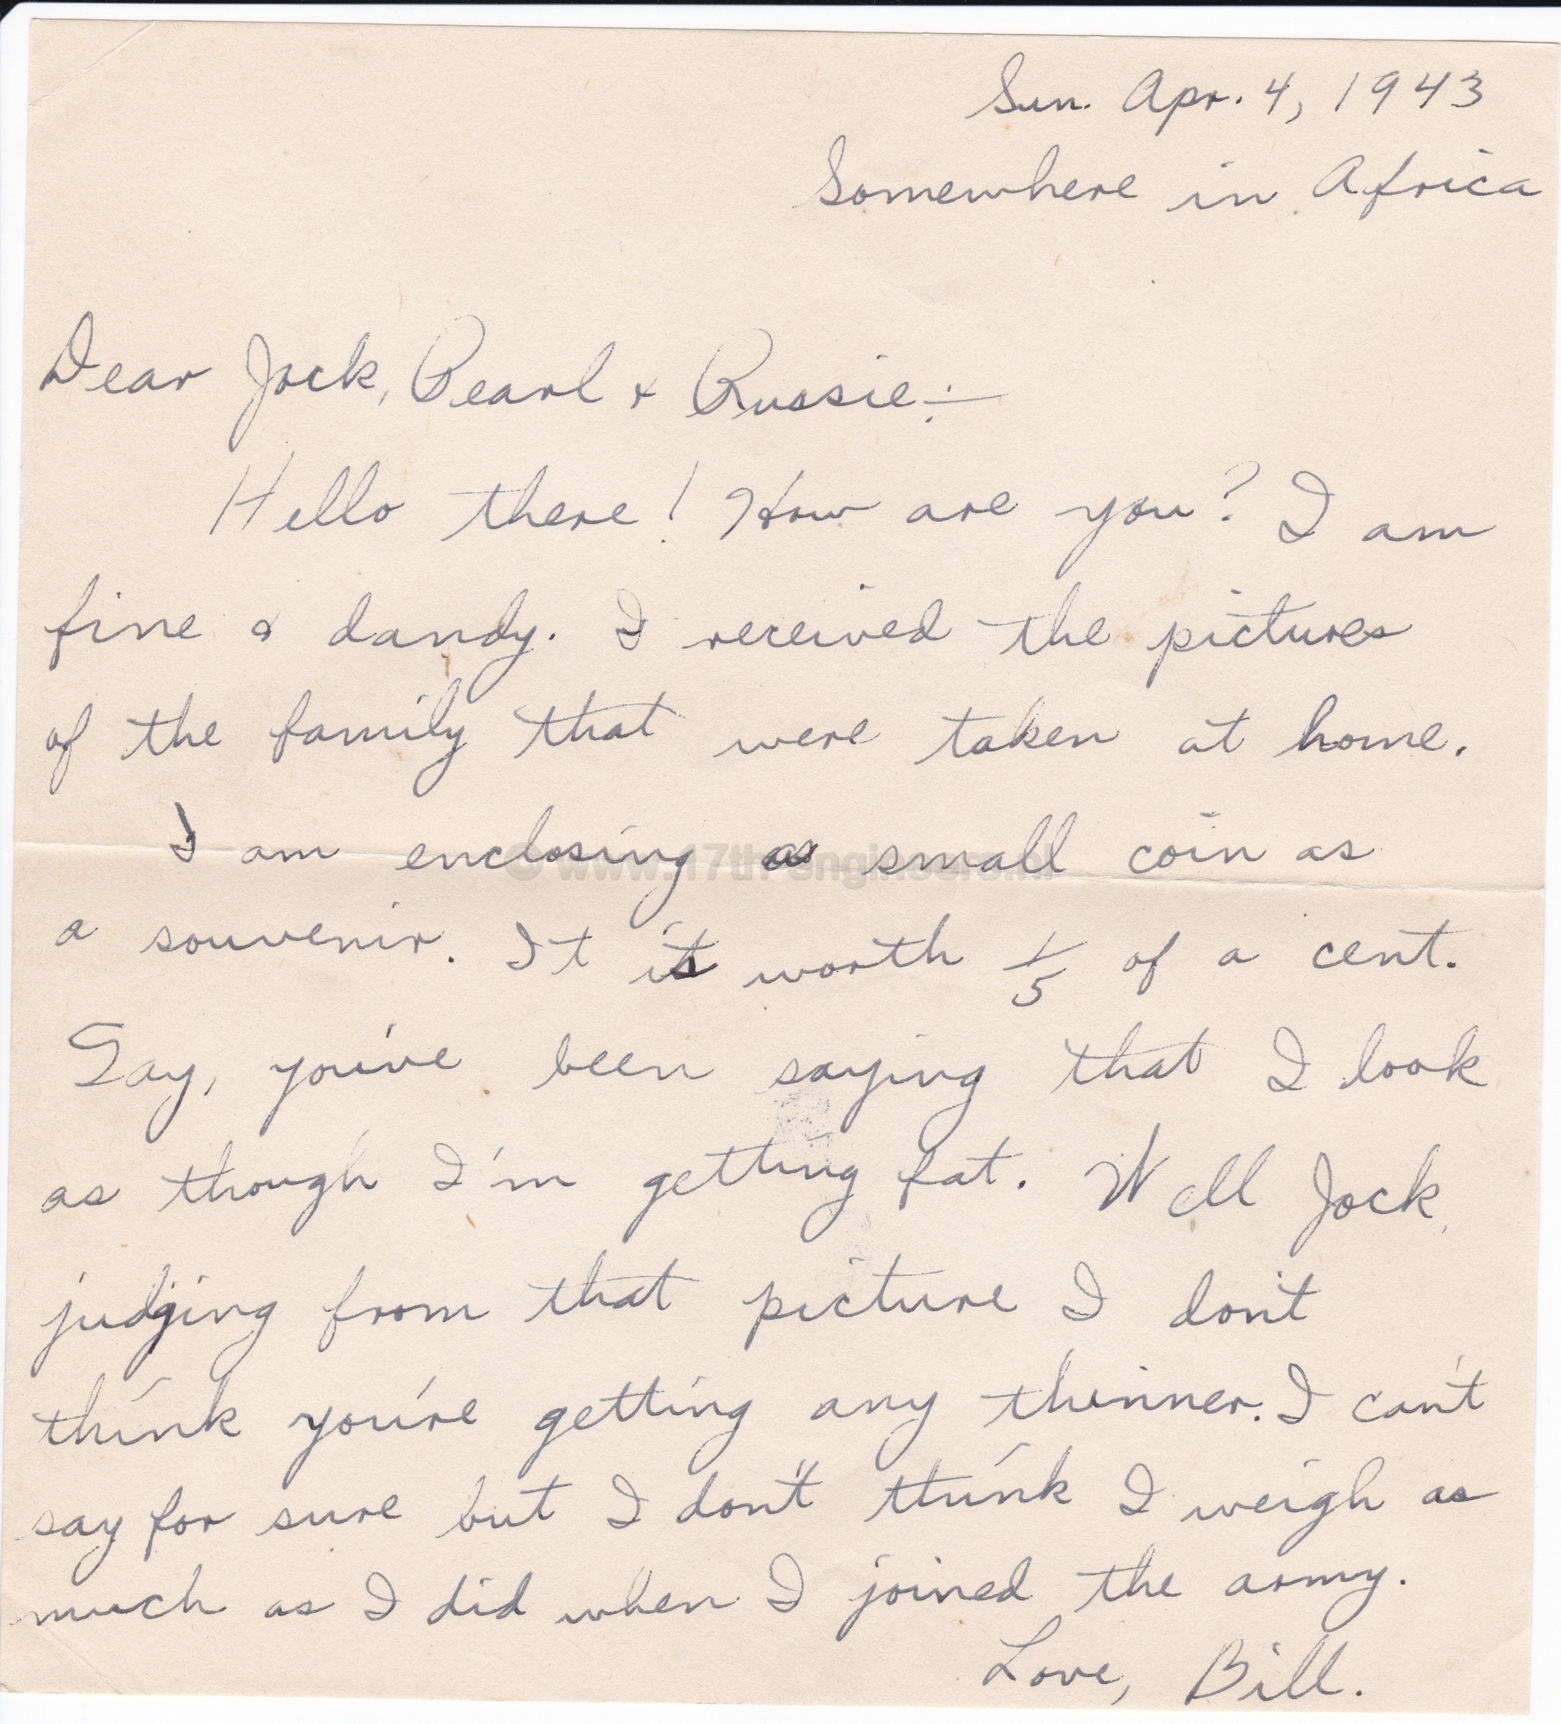 Sun. Apr. 4, 1943
Somewhere in Africa
Dear Jock, Pearl & Russie:-
Hello there! How are you? I am
fine & dandy. I received the pictures
of the family that were taken at home.
I am enclosing a small coin as
© www.17th-engineers.nl
a souvenir. It is worth 1/5 of a cent.
Say, you've been saying that I look
as though I'm getting fat. Well Jock,
judging from that picture I don't
think you're getting any thinner. I can't
say for sure but I don't think I weigh as
much as I did when I joined the army.
Love, Bill.